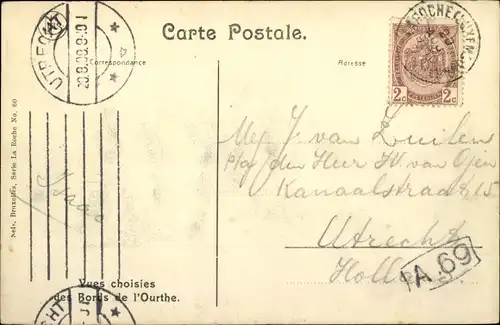 Carte Postale.
Correspondance
Adresse
UTRECHT
2c 2c
Mej J. van Zuilen
p/a den Heer H. van Ojen
Kanaalstraat 15
Utrecht
Holland
IA 69
Isaac
Nels, Bruxelles, Serie La Roche No. 80
Vues choisies
des Bords de l'Ourthe.